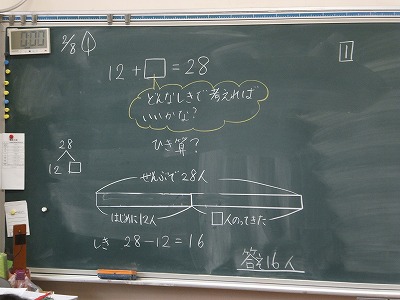 2/8
1
12 + □ = 28
どんなしきで考えれば
いいかな?
ひき算?
28
12 □
ぜんぶで28人
はじめに12人
□人のってきた
しき 28-12=16
答え16人